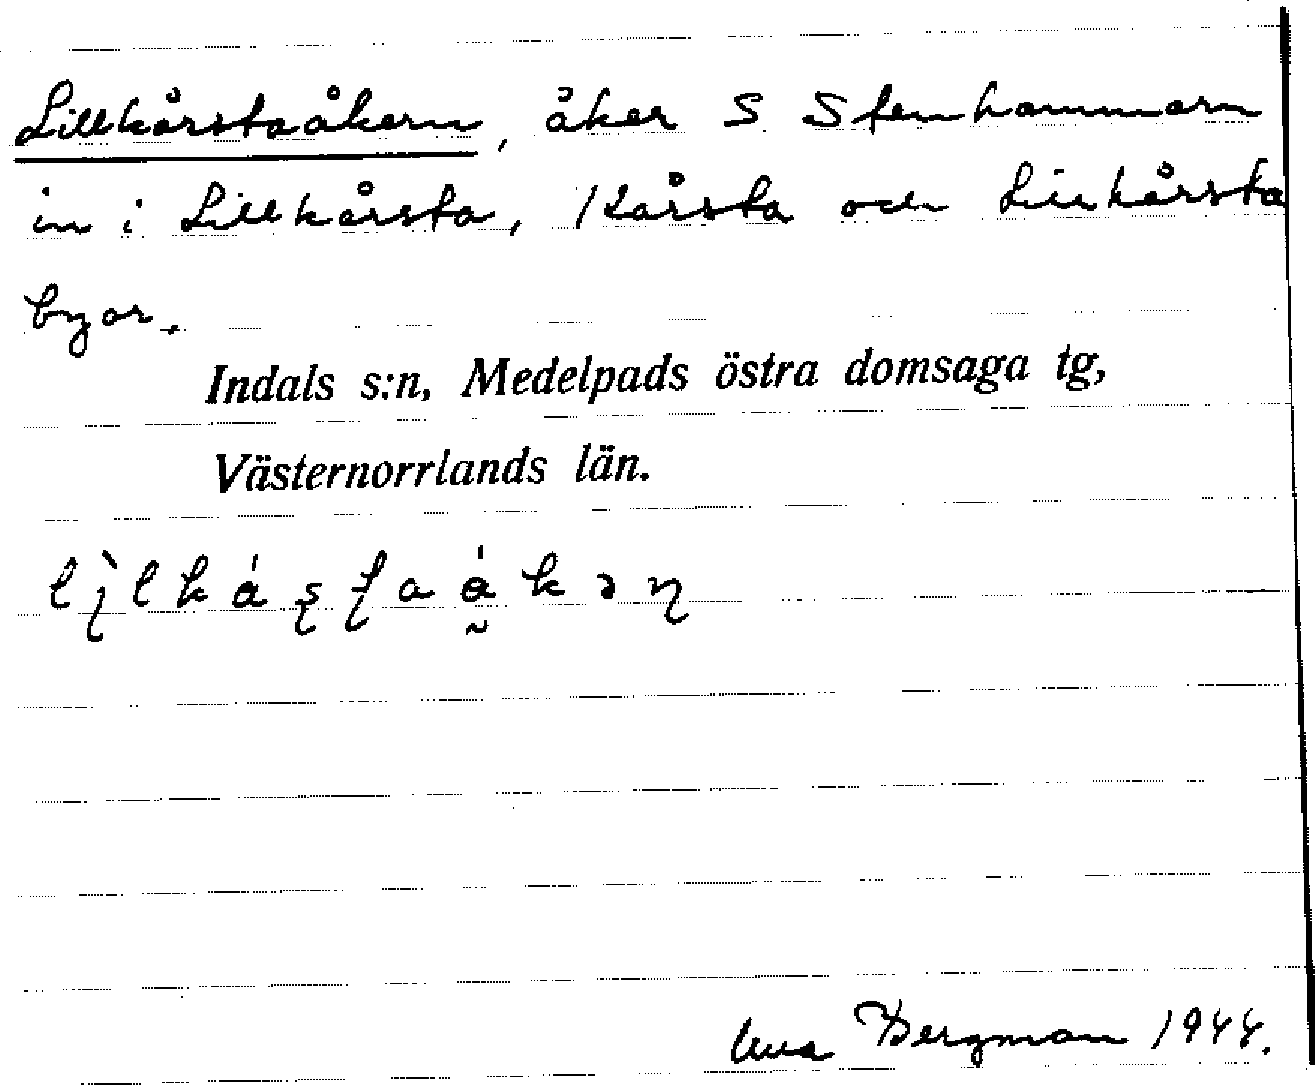 Lillkårstaåkern, åker S Stenhammarn
in i Lillkårsta, Kårsta och Lillkårsta
byar.
Indals s:n, Medelpads östra domsaga tg,
Västernorrlands län.
Bergman 1944.